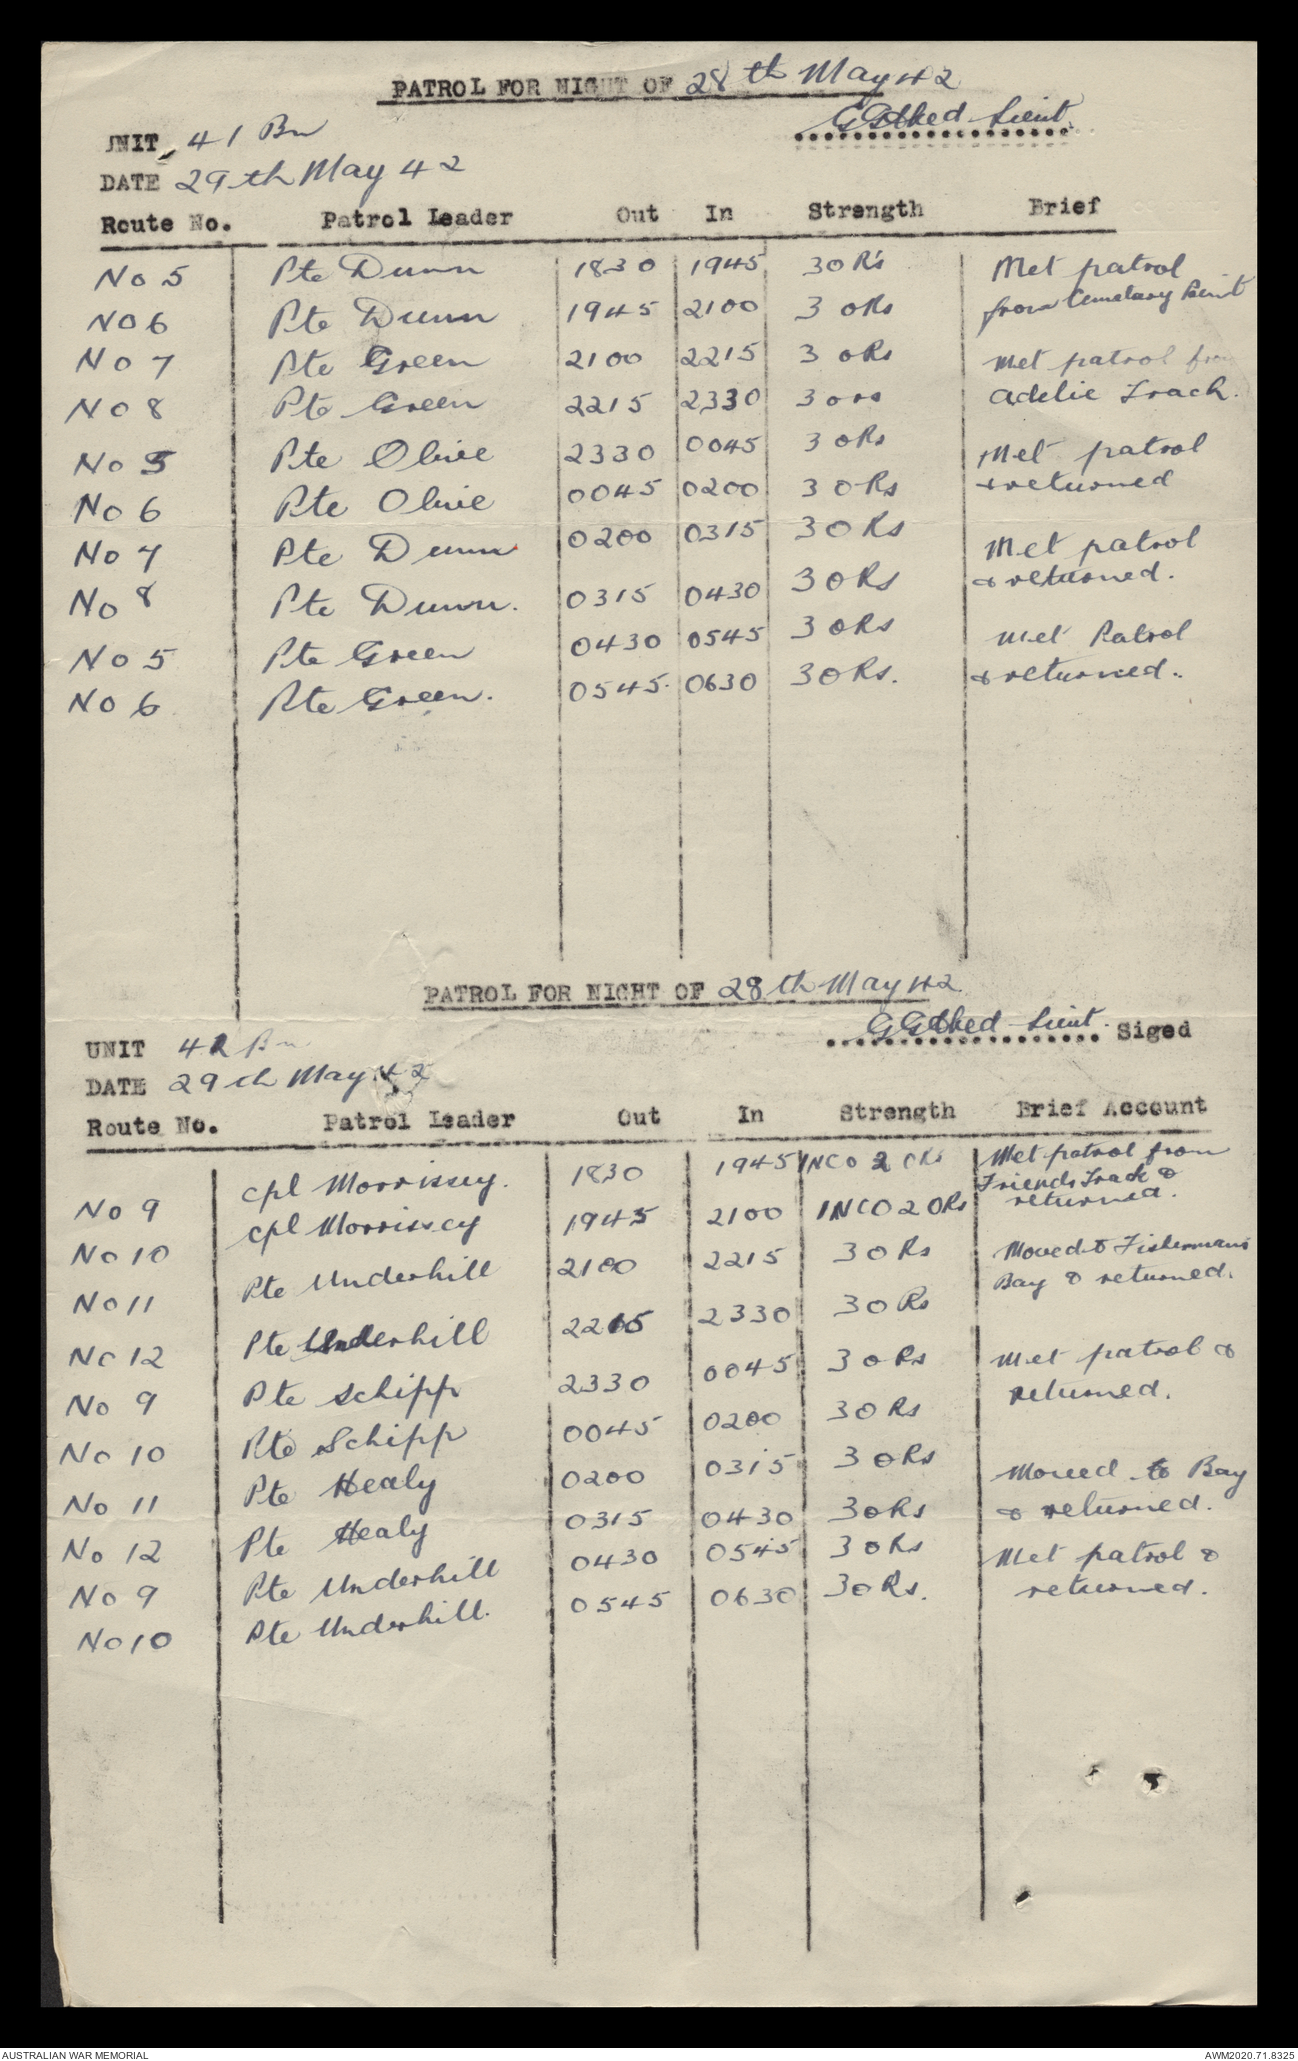 PATROL FOR NIGHT OF 28th May 42
Lieut.
UNIT 41 Bn
DATE 29th May 42
Route No. Patrol Leader Out In Strength Brief
No 5 Pte Dunn 1830 1945 3 ORs Met patrol
No 6 Pte Dunn 1945 2100 3 ORs from Cemetary Point
No 7 Pte Green 2100 2215 3 ORs Met patrol from
No 8 Pte Green 2215 2330 3 ors Adelie Track.
No 5 Pte Olive 2330 0045 3 ORs Met patrol
No 6 Pte Olive 0045 0200 3 ORs & returned
No 7 Pte Dunn 0200 0315 3 ORs Met patrol
No 8 Pte Dunn. 0315 0430 3 ORs & returned.
No 5 Pte Green 0430 0545 3 ORs Met Patrol
No 6 Pte Green. 0545. 0630 3 ORs. & returned..
PATROL FOR NIGHT OF 28th May 42.
Lieut. Siged
UNIT 42 Bn
DATE 29th May 42
Route No. Patrol Leader Out In Strength Brief Account
No 9 Cpl Morrissey. 1830 1945 1 NCO 2 ORs Met patrol from
Friends Track &
returned.
No 10 Cpl Morrissey 1945 2100 1 NCO 2 ORs
No 11 Pte Underhill 2100 2215 3 ORs Moved to Fishermans
No 12 Pte Underhill 2215 2330 3 ORs Bay & returned.
No 9 Pte Schipp 2330 0045 3 ORs Met patrol &
No 10 Pte Schipp 0045 0200 3 ORs returned.
No 11 Pte Healy 0200 0315 3 ORs Moved to Bay
No 12 Pte Healy 0315 0430 3 ORs & returned.
No 9 Pte Underhill 0430 0545 3 ORs Met patrol &
No 10 Pte Underhill. 0545 0630 3 ORs. returned.
AUSTRALIAN WAR MEMORIAL AWM2020.71.8325